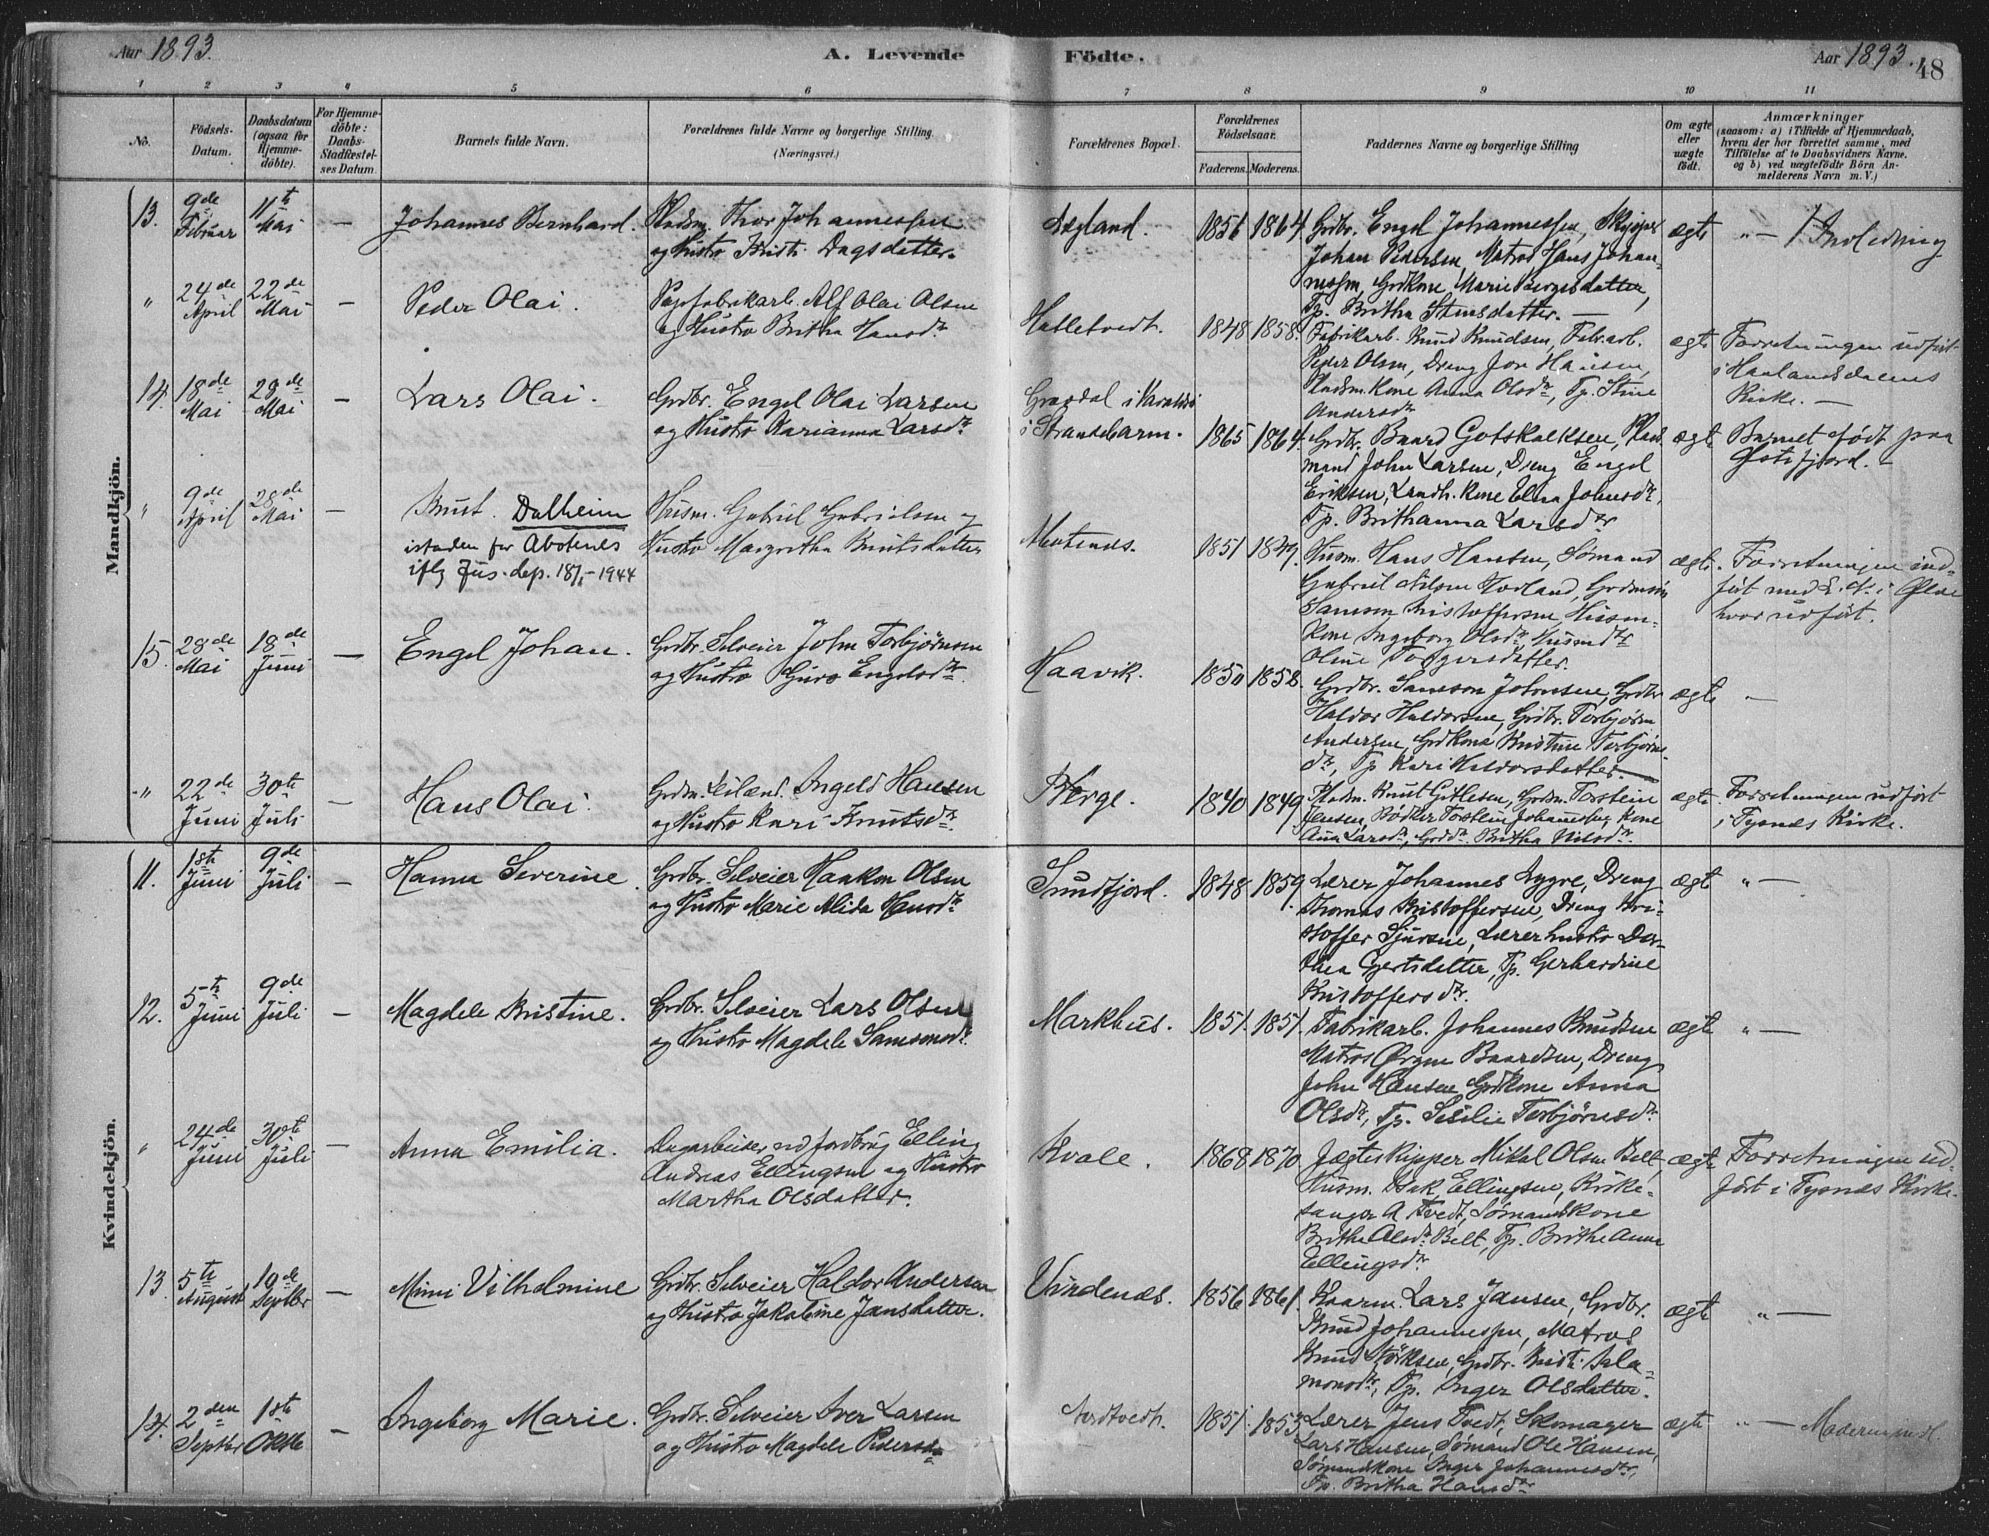 Aar 1893.
A. Levende
Födte.
Aar 1893.
48
1 2 3 4 5 6 7 8 9 10 11
No.
Födsels-
Datum.
Daabsdatum
(ogsaa for
Hjemme-
döbte).
For Hjemme-
döbte:
Daabs-
Stadfæstel-
ses Datum.
Barnets fulde Navn.
Forældrenes fulde Navne og borgerlige Stilling.
(Næringsvei.)
Forældrenes Bopæl.
Forældrenes
Födselsaar.
Faderens. Moderens.
Faddernes Navne og borgerlige Stilling
Om ægte
eller
uægte
födt.
Anmærkninger
(saasom: a) i Tilfælde af Hjemmedaab,
hvem der har forrettet samme, med
Tilföielse af to Daabsvidners Navne.
og b) ved uægtefödte Börn An-
melderens Navn m. V.)
Mandkjön.
13. 9de Februar 11te Mai — Johannes Bernhard.
Pladsm. Thor Johannessen
og Hustro Kristi Dagsdatter.
Ægland. 1851 1864
Grdbr. Engel Johannessen, Skipper
Johan Pedersen, Matros Hans Johan-
nessen, Grdkone Marie Børgesdatter,
Tp. Britha Stensdatter. —
ægte " — / Indledning
" 24de April 22de Mai — Peder Olai.
Papfabrikarb. Alf Olai Olsen
og Hustro Britha Hansdr
Hatletvedt. 1848 1858.
Fabrikarb. Knud Knudsen, Fabr.arb.
Peder Olsen, Dreng Jon Hansen,
Pladsm. Kone Anna Olsdr, Tp. Stine
Andersdr
ægte Forretningen udført
i Haalandsdalens
Kirke. —
14. 18de Mai 28de Mai — Lars Olai.
Grdbr. Engel Olai Larsen
og Hustro Marianna Larsdr
Gravdal i Varaldsø
i Strandebarm. 1865 1864.
Grdbr. Baard Gotskalksen, Plads-
mand John Larsen, Dreng Engel
Eriksen, Landh. Kone Elna Johnsdr,
Tp. Brithanna Larsdr
ægte Barnet født paa
Østefjord. —
" 9de April 28de Mai — Knut. Dalheim
istaden for Abotenes
iflg Jus.-dep. 18/1-1944
Husm. Gabriel Gabrielsen og
Hustro Margretha Knutsdatter
1851 1849.
Husm. Hans Hansen, Sømand
Gabriel Nilsen Hovland, Grdmsøn
Samson Kristoffersen, Husm.
Kone Ingeborg Olsdr, Husmdtr
Oline Torgersdatter.
ægte Forretningen ind-
ført med L. N. i Ølve
hvor udført.
15. 28de Mai 18de Juni — Engel Johan.
Grdbr. Selveier John Torbjørnsen
og Hustro Guro Engelsdr.
Haavik. 1850 1858.
Grdbr. Samson Johnsen, Grdbr
Haldor Haldorsen, Grdbr. Torbjørn
Andersen, Grdkone Kristine Torbjørns-
dr, Tp Kari Haldorsdatter. —
ægte —
" 22de Juni 30te Juli — Hans Olai.
Grdm. Leilænd. Ingeld Hansen
og Hustro Kari Knutsdr.
Berge. 1840 1849
Pladsm. Knut Gitlesen, Grdm. Torstein
Jensen, Bødker Torstein Johannesen, Kone
Ana Larsdr, Grddr. Britha Nilsdr.
ægte Forretningen udført
i Tysnes Kirke.
Kvindekjön.
11. 1ste Juni 9de Juli — Hanna Severine.
Grdbr. Selveier Haakon Olsen
og Hustro Marie Alida Hansdr
Sundfjord. 1848 1859.
Lærer Johannes Lygre, Dreng
Thomas Kristoffersen, Dreng Kri-
stoffer Sjursen, Lærerhustro Dor-
thea Gjertsdatter, Tp. Gerhardine
Kristoffersdr.
ægte " —
12. 5te Juni 9de Juli — Magdele Kristine.
Grdbr. Selveier Lars Olsen
og Hustro Magdele Samsonsdr.
Markhus. 1851. 1851.
Fabrikarb. Johannes Knudsen
Matros Ørjan Baardsen, Dreng
John Hansen Grdkone Anna
Olsdr, Tp. Sesilie Torbjørnsdr.
ægte " —
" 24de Juni 30te Juli — Anna Emilia.
Dagarbeider ved jordbrug Elling
Andreas Ellingsen og Hustro
Martha Olsdatter.
Kvale. 1868 1870
Jægteskipper Mikal Olsen Belt,
Husm. Isak Ellingsen, Kirke-
sanger A Tvedt, Sømandskone
Britha Olsdr Belt, Tp. Brithe Anna
Ellingsdr
ægte Forretningen ud-
ført i Tysnes Kirke.
13. 5te August 10de Septbr — Mimi Vilhelmine
Grdbr. Selveier Haldor Andersen
og Hustro Jakobine Jansdatter.
Vindenæs. 1856 1861.
Kaarm. Lars Jansen, Grdbr.
Knud Johannessen, Matros
Knud Størksen, Grdbr. Kristi Sala-
monsdr, Tp. Inger Olsdatter.
ægte " —
14. 2den Septbr 1ste Oktb — Ingeborg Marie.
Grdbr. Selveier Iver Larsen
og Hustro Magdele Pedersdr
Nordtvedt. 1851. 1853
Lærer Jens Tvedt, Skomager
Lars Hansen, Sømand Ole Hansen,
Sømandskone Inger Johannesdr,
Tp. Britha Hansdr
ægte " —